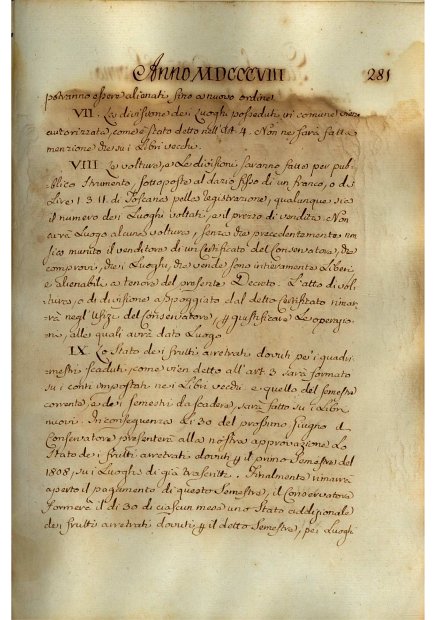 Anno MDCCCVIII 281
potranno essere alienati, sino a nuovo ordine.
VII. La divisione dei Luoghi posseduti in comune viene
autorizzata, come è stato detto nell'Art. 4. Non ne sarà fatta
menzione che su i Libri vecchi.
VIII Le volture, e Le divisioni saranno fatte per pub-
blico Istrumento, sottoposte al dazio fisso di un franco, o di
Lire 1 3 11 di Toscana pella registrazione, qualunque sia
il numero dei Luoghi voltati, e il prezzo di vendita. Non
avrà Luogo alcuna voltura, senza che precedentemente non
sia munito il venditore di un Certificato del Conservatore, che
comprovi, che i Luoghi, che vende sono interamente Liberi
e alienabili a tenore del presente Decreto. L'atto di vol-
tura, o di divisione appoggiato dal detto Certificato rimar-
rà negl'Ufizi del Conservatore, p giustificare Le operazio-
ni, alle quali avrà dato Luogo.
IX. Lo Stato dei frutti arretrati dovuti pe' i quadri-
mestri scaduti, come vien detto all'art 3 sarà formato
su i conti impostati nei Libri vecchi e quello del semestre
corrente, e dei semestri da scadere, sarà fatto su i Libri
nuovi. In conseguenza Li 30 del prossimo Giugno il
Conservatore presenterà alla nostra approvazione Lo
Stato dei frutti arretrati dovuti p il primo Semestre del
1808, su i Luoghi di già trascritti. Finalmente rimarrà
aperto il pagamento di questo Semestre, il Conservatore
formerà il dì 30 di ciascun mese uno Stato addizionale
dei frutti arretrati dovuti p il detto Semestre, pei Luoghi